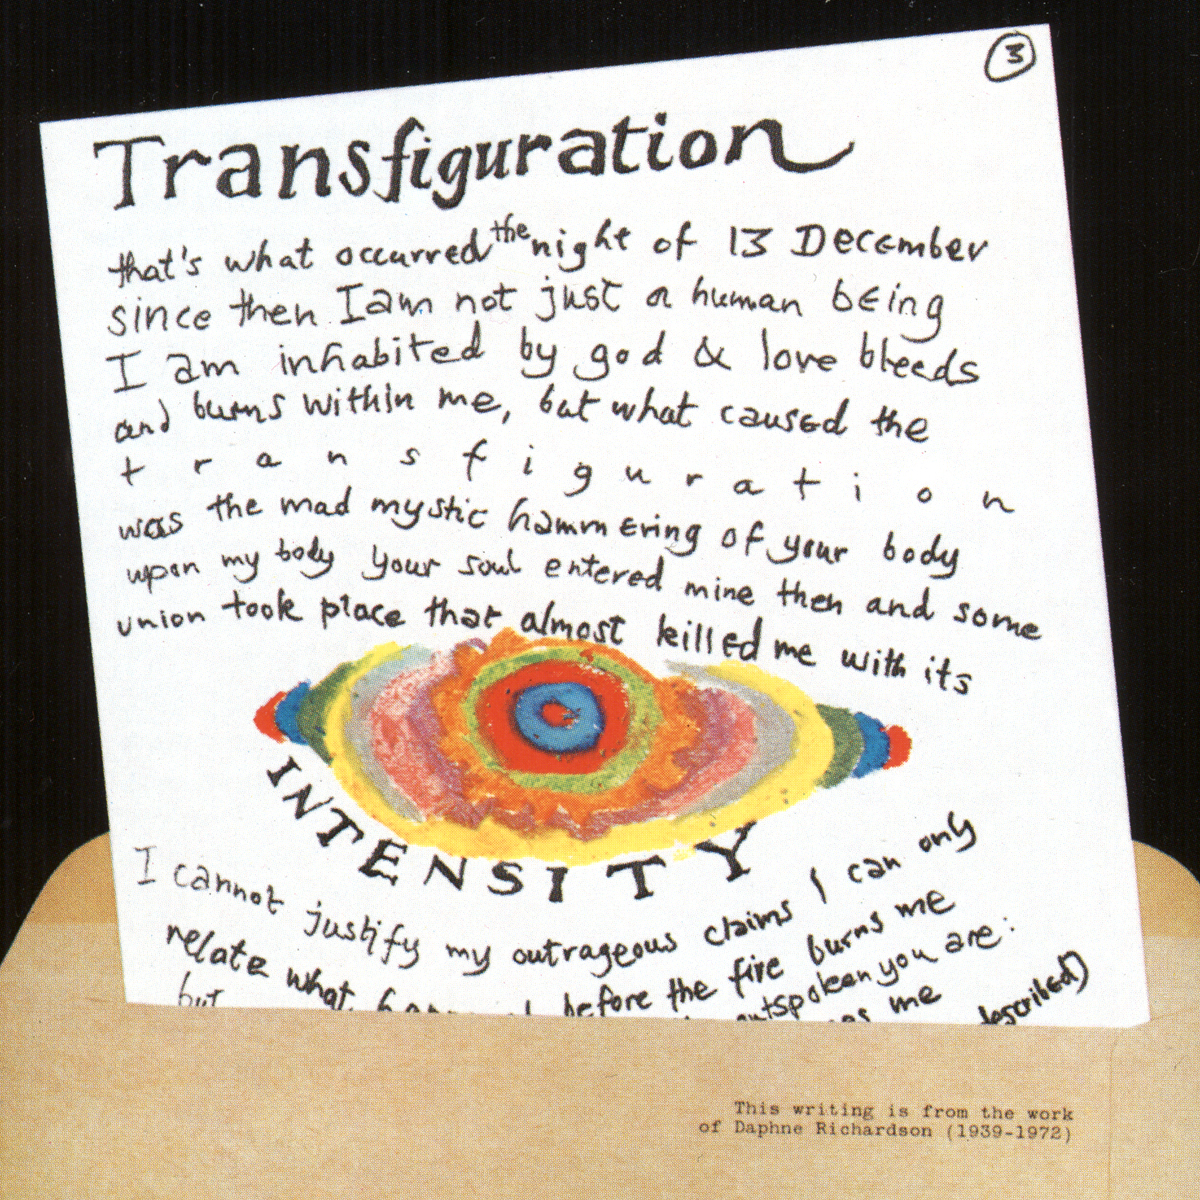 3
Transfiguration
that's what occurred the night of 13 December
since then I am not just a human being
I am inhabited by god & love bleeds
and burns within me, but what caused the
t r a n s f i g u r a t i o n
was the mad mystic hammering of your body
upon my body your soul entered mine then and some
union took place that almost killed me with its
INTENSITY
I cannot justify my outrageous claims I can only
relate what before the fire burns me
but outspoken you are:
me described)
This writing is from the work
of Daphne Richardson (1939-1972)